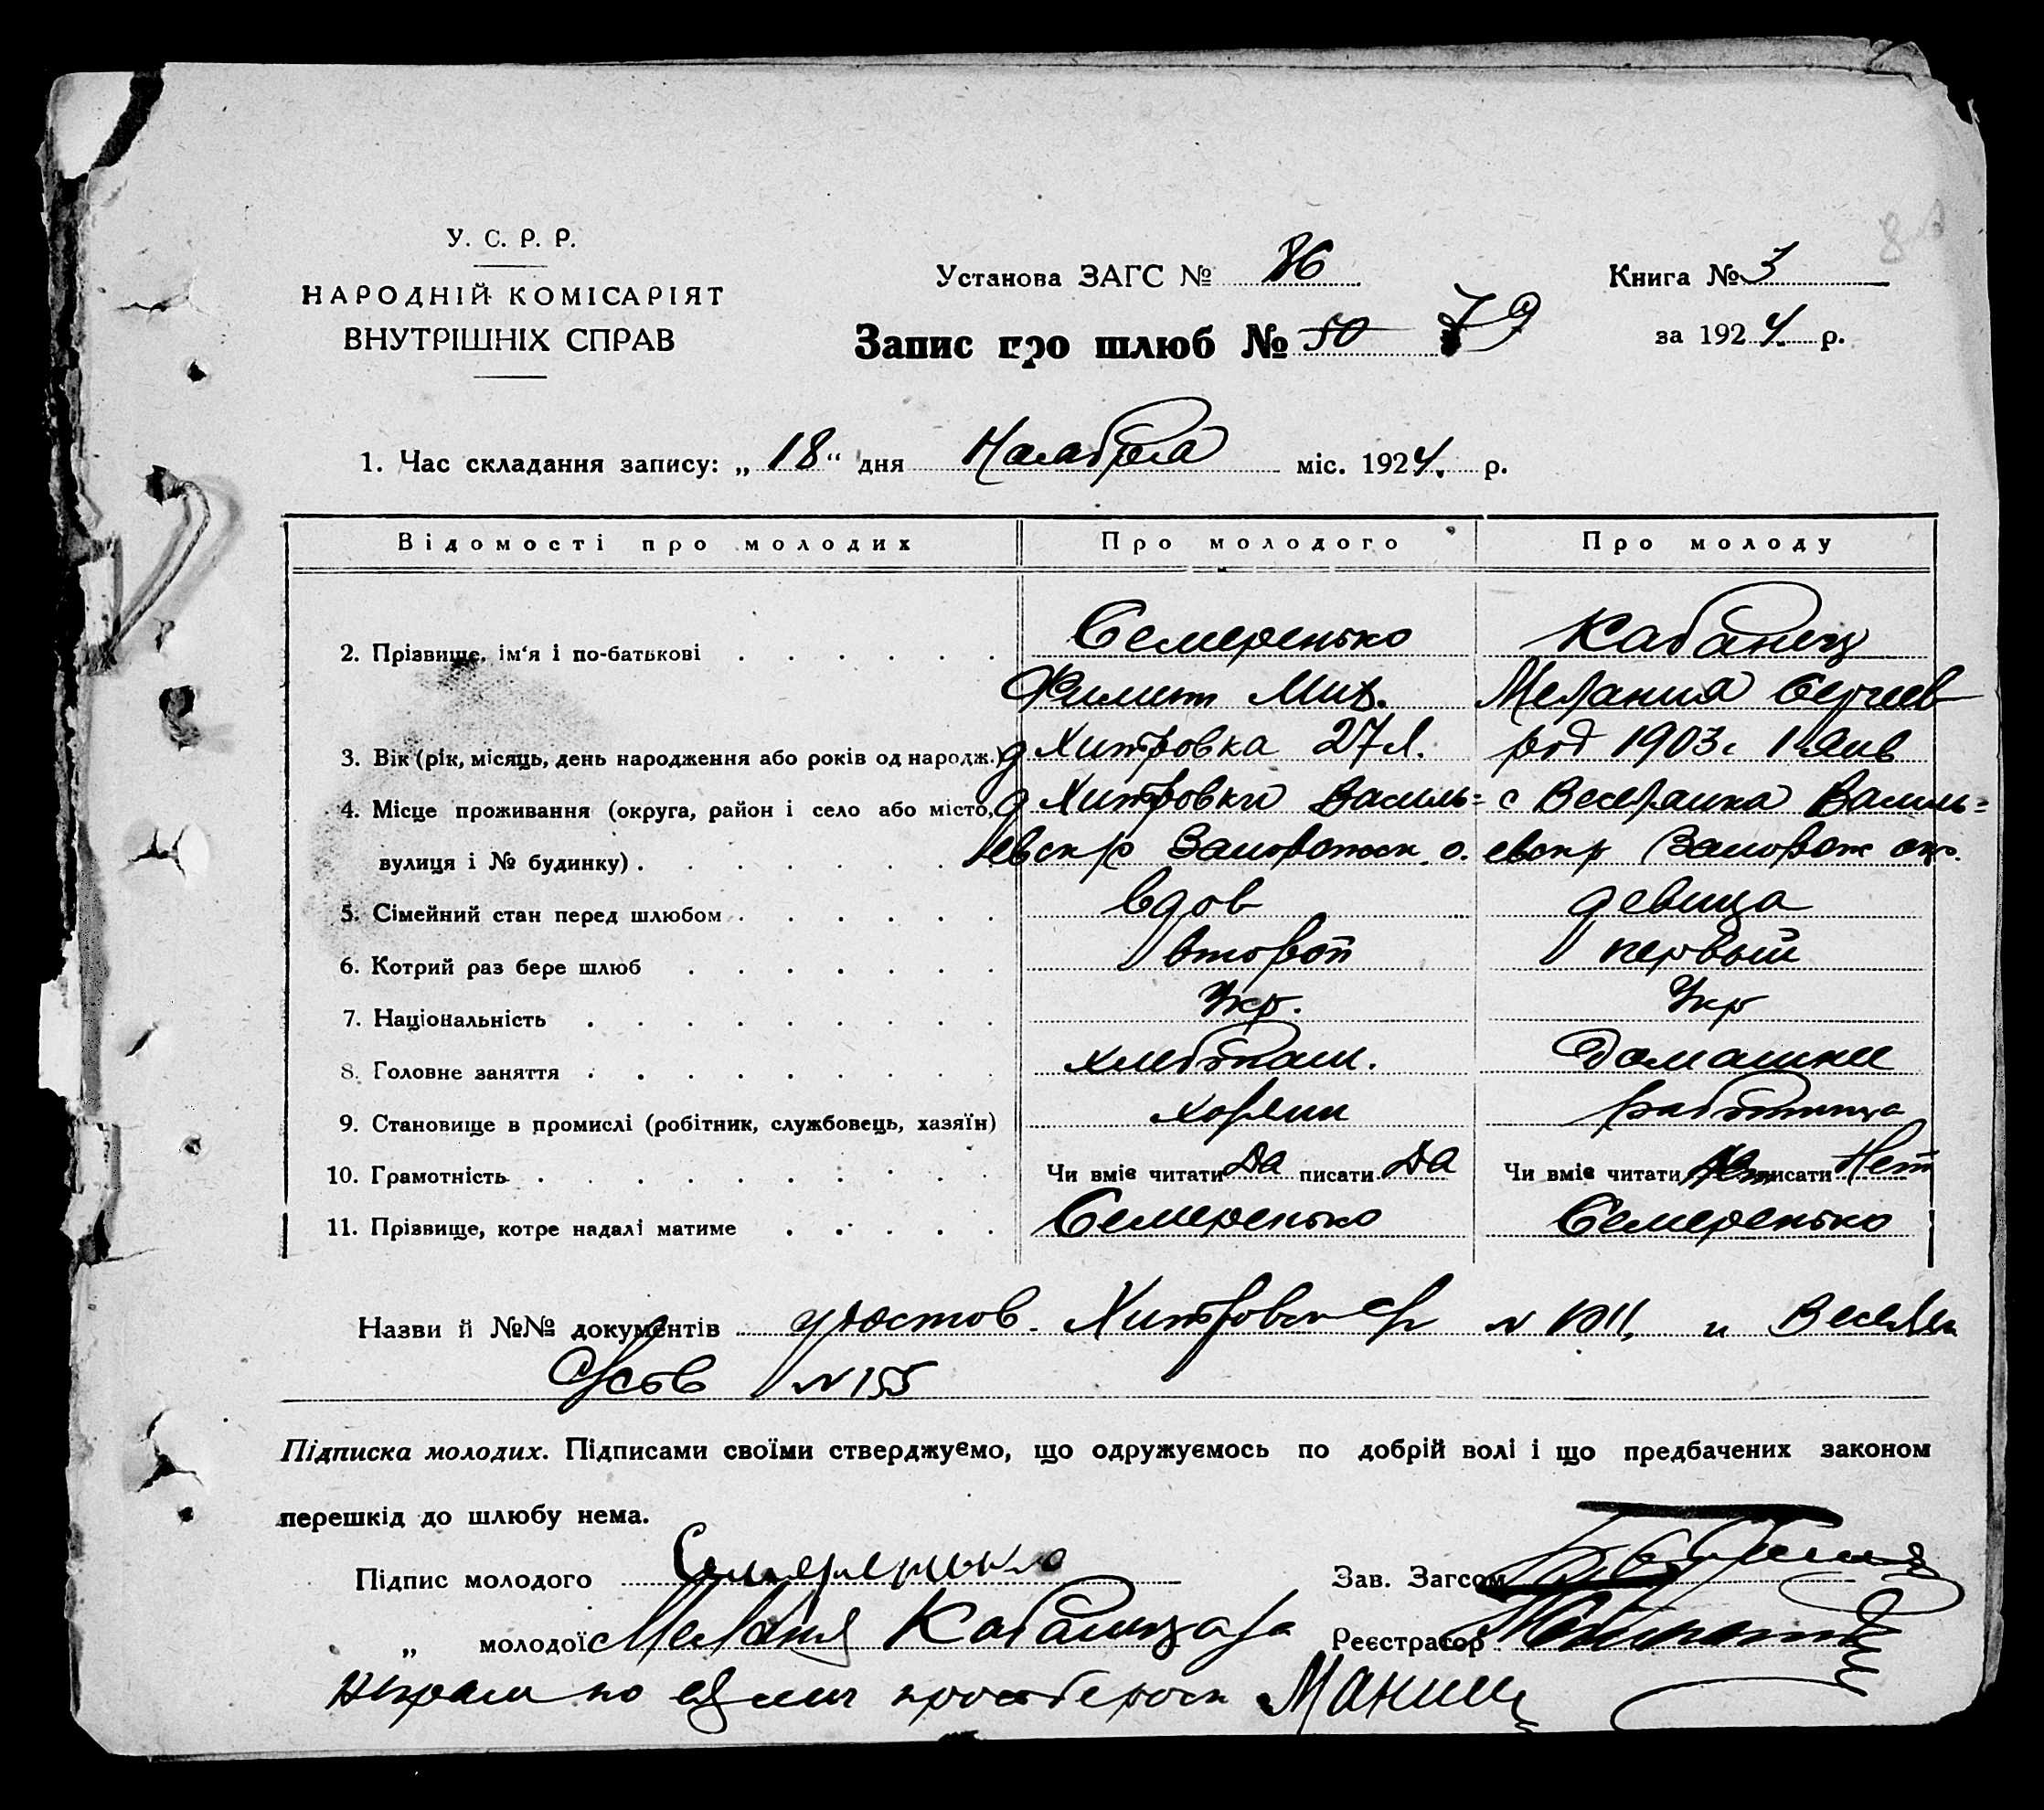 У. С. Р. Р.
НАРОДНІЙ КОМІСАРІЯТ
ВНУТРІШНІХ СПРАВ
Установа ЗАГС № 86
Книга № 3
Запис про шлюб № 50 79
за 1924 р.
1. Час складання запису: „ 18 “ дня Наября міс. 1924. р.
Відомості про молодих Про молодого Про молоду
2. Прізвище, ім‘я і по-батькові Семеренько Кабанец
Филип Мих. Мелания Сергеев
3. Вік (рік, місяць, день народження або років од народж.) д Хитровка 27 л. род 1903 г 1 янв
4. Місце проживання (округа, район і село або місто, д Хитровки Василь= с Веселянка Василь=
вулиця і № будинку) евск р Запорожск. о. евск р Запорож окр.
5. Сімейний стан перед шлюбом вдов девица
6. Котрий раз бере шлюб второй первый
7. Національність Укр. Укр
8. Головне заняття хлебопаш. Домашнее
9. Становище в промислі (робітник, службовець, хазяїн) хозяин работница
10. Грамотність Чи вміє читати да писати да Чи вміє читати Нет писати Нет
11. Прізвище, котре надалі матиме Семеренько Семеренько
Назви й №№ документів удостов. Хитровск и Веселян
№ 155
Підписка молодих. Підписами своїми стверджуємо, що одружуємось по добрій волі і що предбачених законом
перешкід до шлюбу нема.
Підпис молодого Семеренько Зав. Загсом
„ молодої Мелания Реєстратор